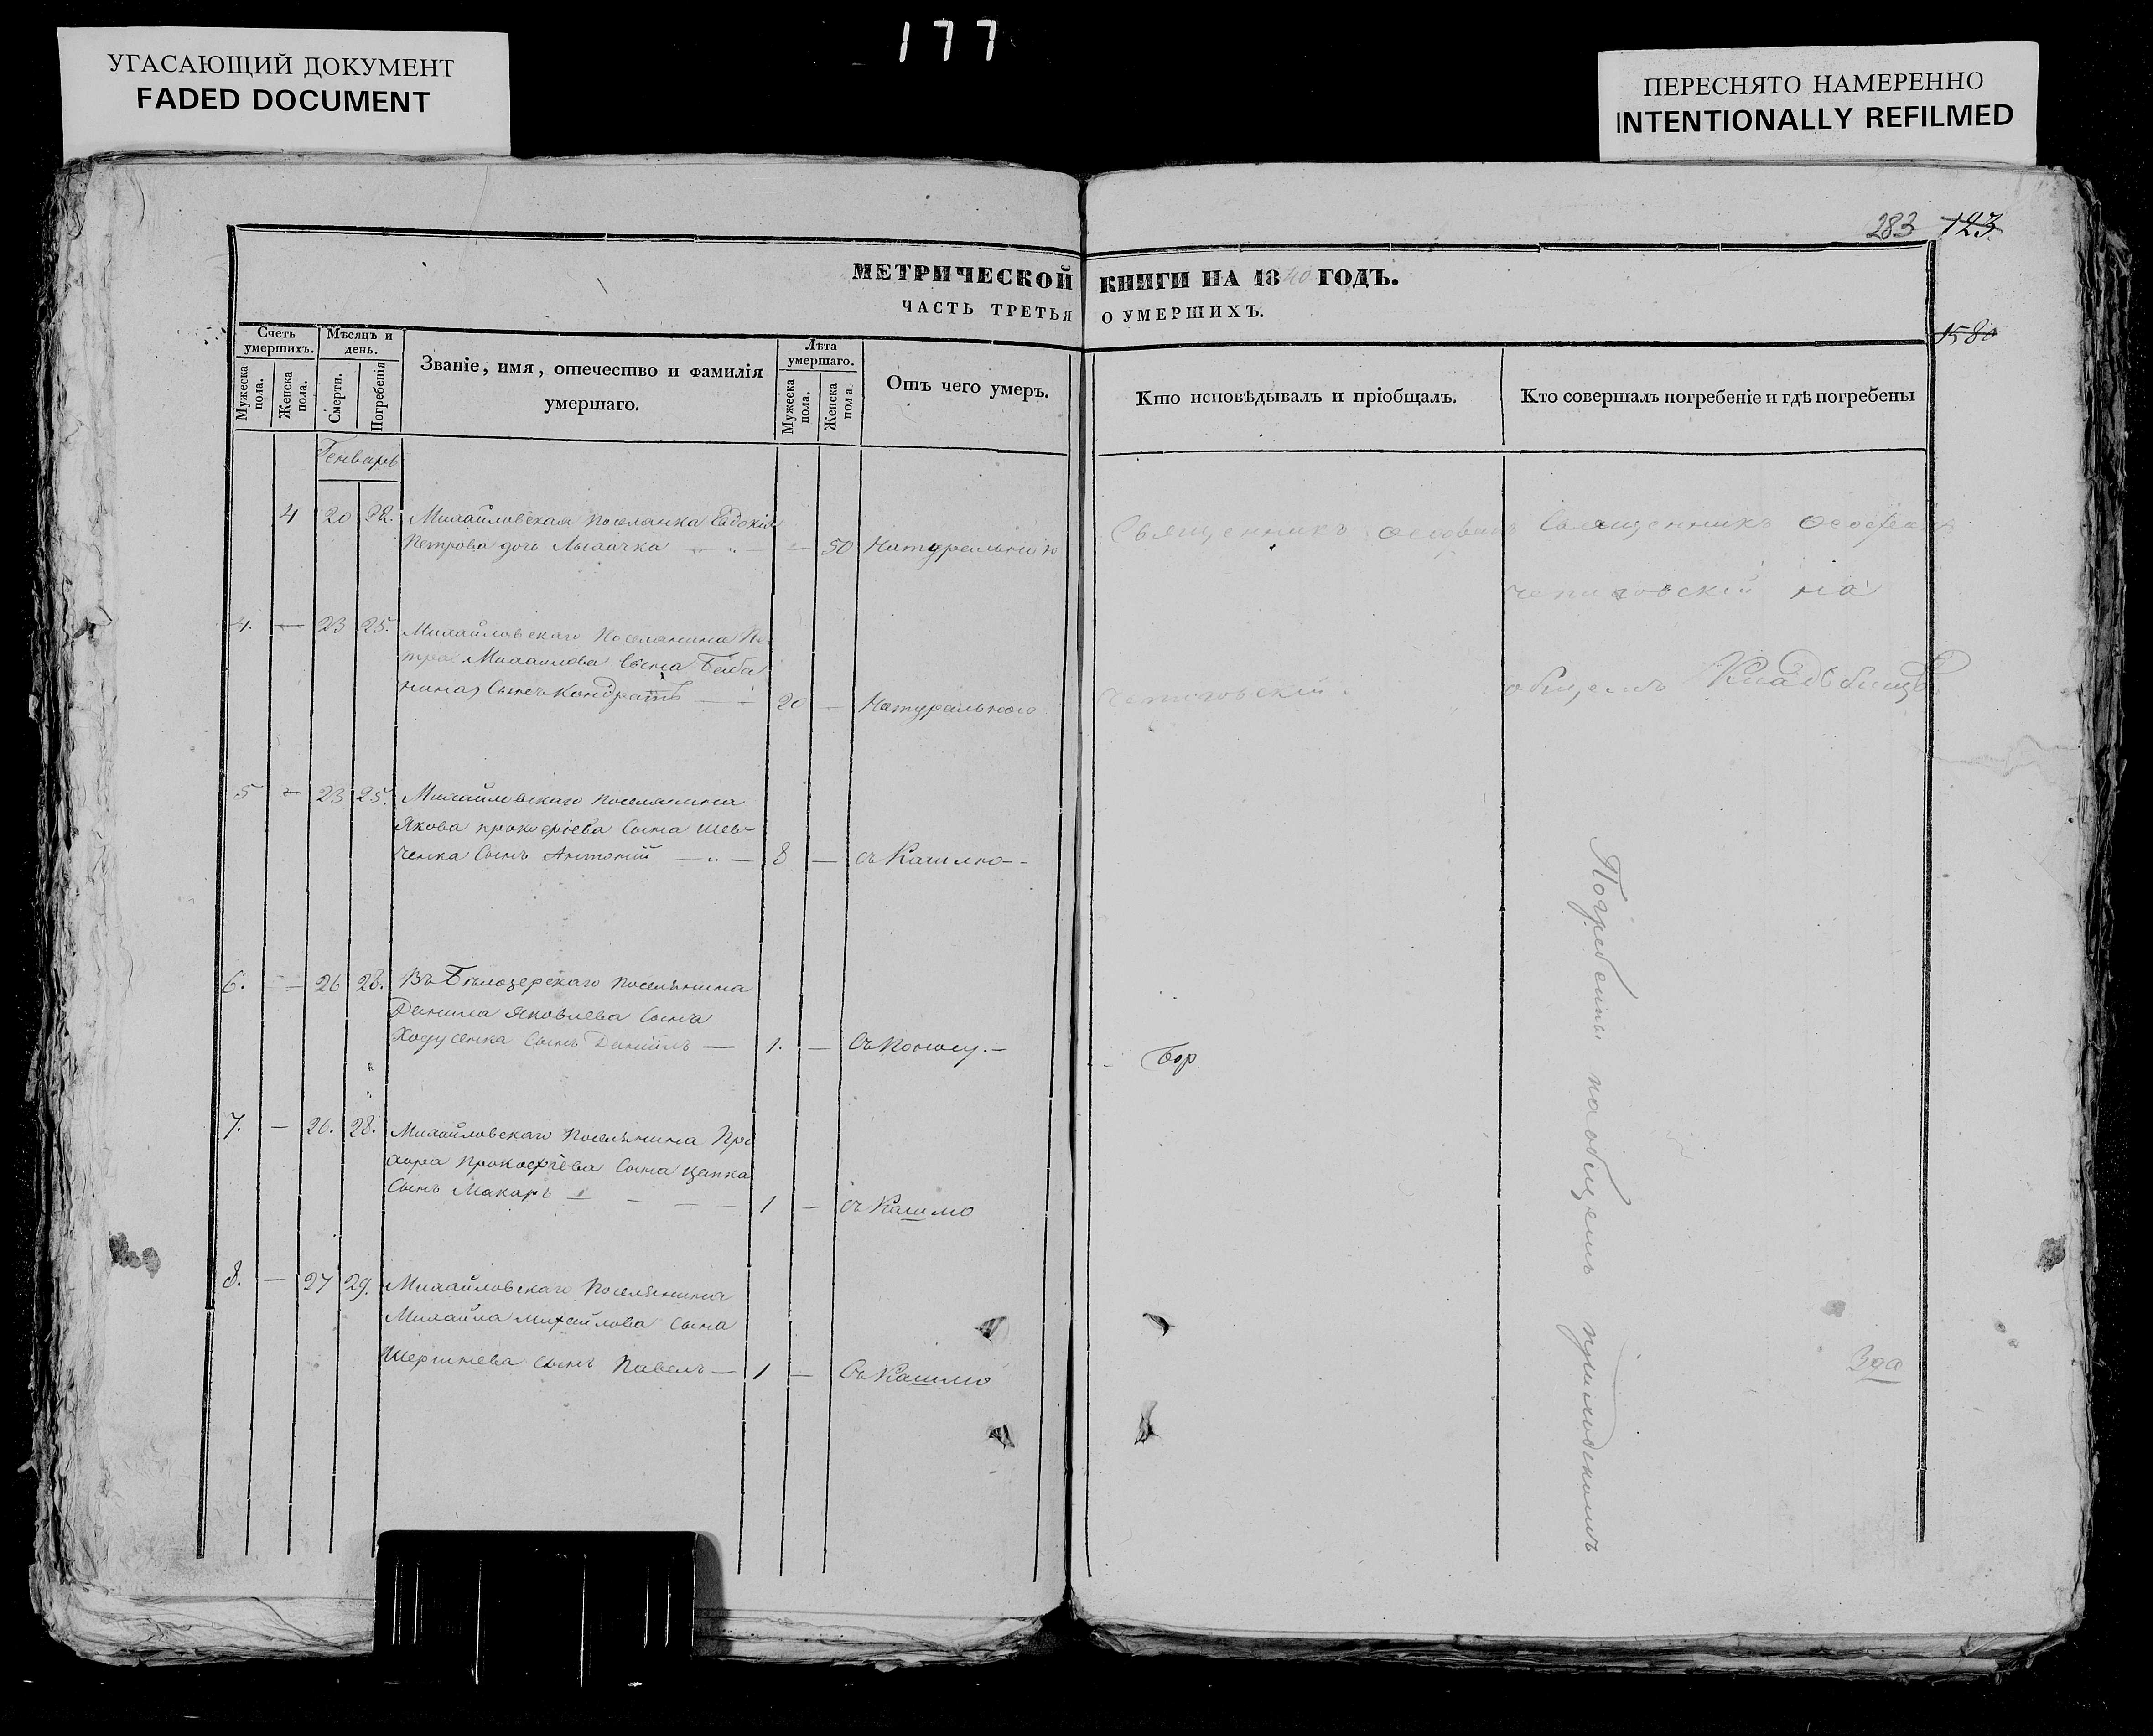 177
УГАСАЮЩИЙ ДОКУМЕНТ
FADED DOCUMENT
ПЕРЕСНЯТО НАМЕРЕННО
INTENTIONALLY REFILMED
283 123
1580
МЕТРИЧЕСКОЙ КНИГИ НА 1840 ГОДЪ.
ЧАСТЬ ТРЕТЬЯ О УМЕРШИХЪ.
Счетъ умершихъ.
Мужеска пола.
Женска пола.
Мѣсяцъ и день.
Смерти.
Погребенія
Званіе, имя, отечество и фамилія
умершаго.
Лѣта умершаго.
Мужеска пола.
Женска пола
Отъ чего умеръ.
Кто исповѣдывалъ и пріобщалъ.
Кто совершалъ погребеніе и гдѣ погребены
Генварь
4 20 22. Михайловская поселянка Евдокія
Петрова дочь — 50 Натуральною
Священникъ Священникъ Ѳеофанъ
на
4. — 23 25. Михайловскаго Поселянина Пе
тра Михаилова Сына
Сынъ Кондратъ — 20 — Натурального
общемъ Кладбищѣ
5 — 23 25. Михайловскаго поселянина
Якова прокофіева Сына Шев-
ченка Сынъ Антоній — 8 — съ Кашлю
6. — 26 28. Въ Бѣлозерскаго поселянина
Данила Яковлева Сына
Ходусенка Сынъ Даніилъ — 1. — Съ Поносу.
бор
7. — 26. 28. Михайловскаго Поселянина Про
хора Прокофіева Сына Цапка
Сынъ Макаръ — 1 — съ Кашлю
8. — 27 29. Михайловскаго Поселянина
Михайла Михайлова Сына
Сынъ Павелъ — 1 — Съ Кашлю
Погребенны на общемъ приходскомъ